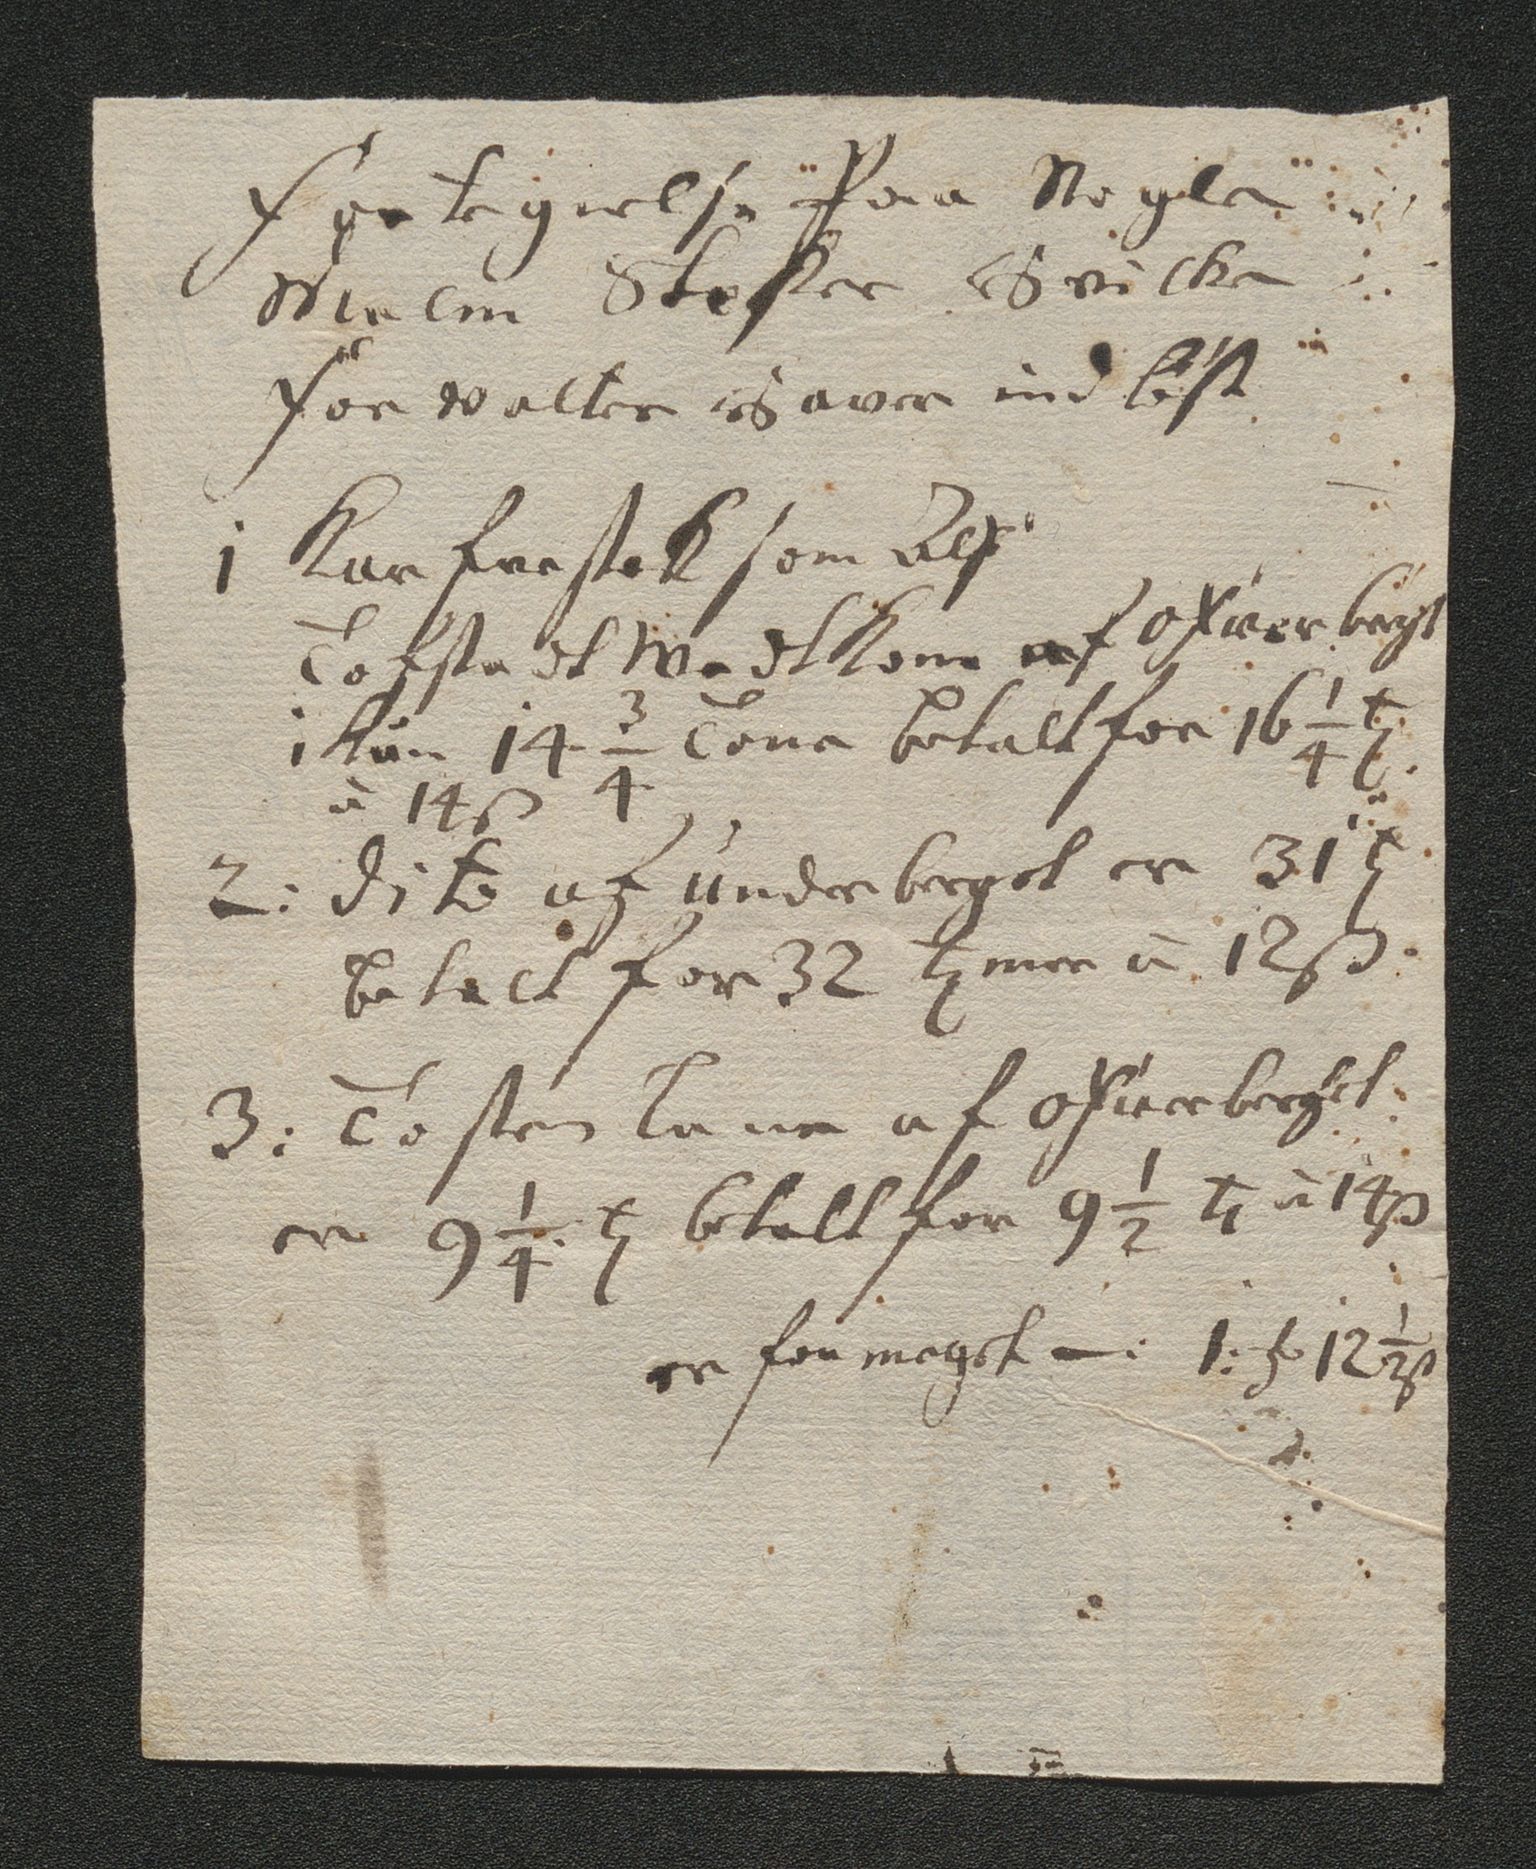 Fortegnelse Paa Nogle
Malm Støcker Hvilcke
For valter Haver ind løst
1 Karfrestek som Alf
Tofstadt Wedkom af Ofwerberget
ikun 14 3/4 Tone betalt for 16 1/4 t
à 14 ß
2: Dito af Underberget er 31 t
betalt for 32 tmer à 12 ß
3: Tosten Lane af Ofwerberget
er 9 1/4 t betalt for 9 1/2 t à 14 ß
er for meget —: 1: rd 12 1/2 ß